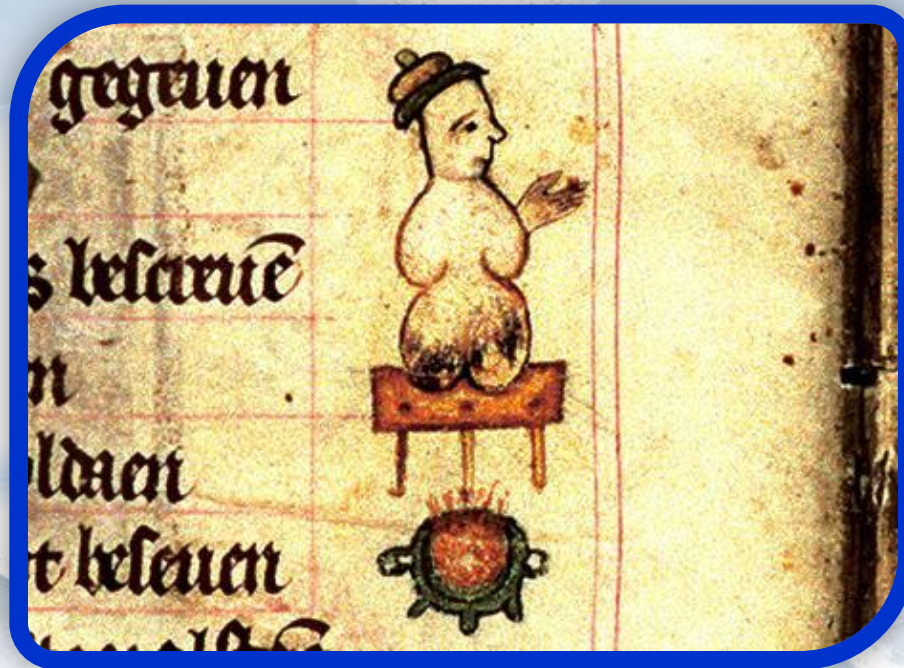 gegeuen
s bescreuē
n
ldaen
t beseuen